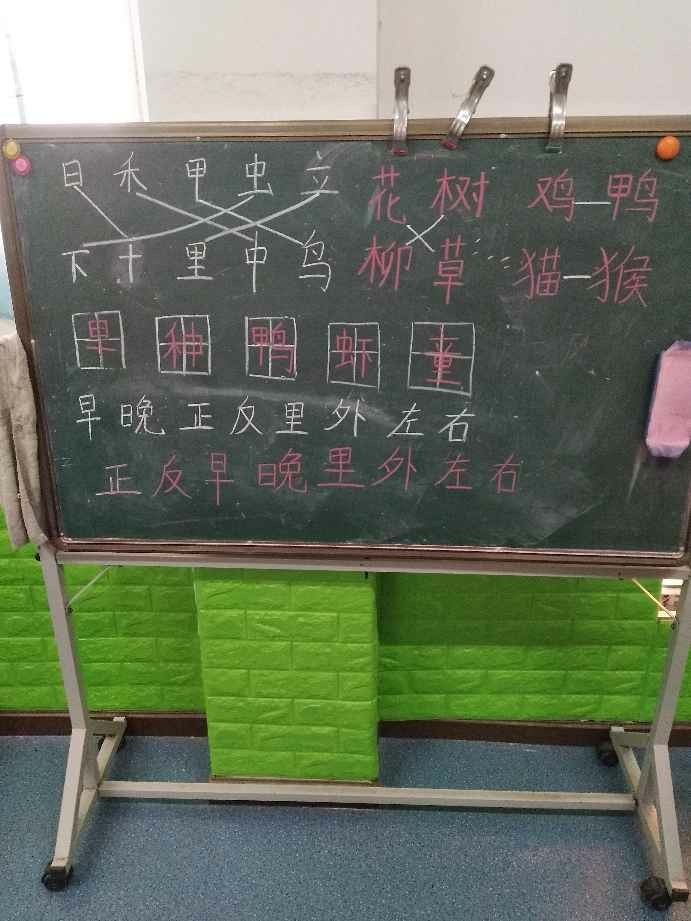 日 禾 甲 虫 立 花 树 鸡—鸭
下 十 里 中 鸟 柳 草 猫—猴
早 种 鸭 虾 童
早 晚 正 反 里 外 左 右
正 反 早 晚 里 外 左 右